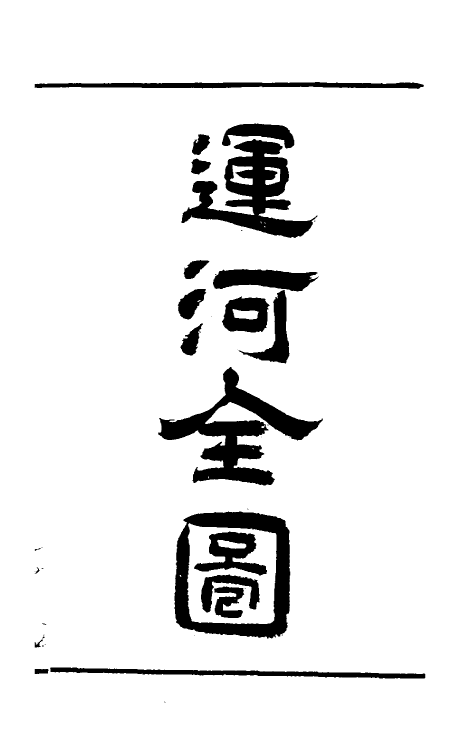 運河全圖